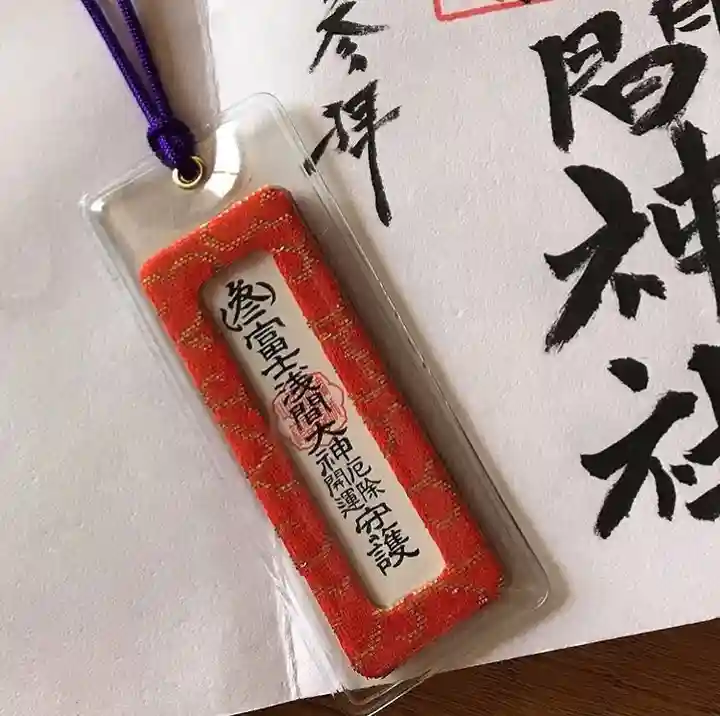 参拝
間神社
富士浅間大神
厄除
開運
守護